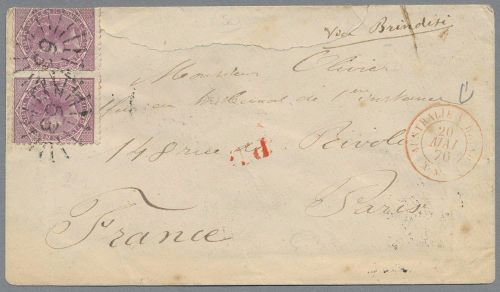 Via Brindisi
Monsieur Olivier
au Tribunal de 1re Instance
148 rue de Rivoli
Paris
France
1d
20
MAI
76